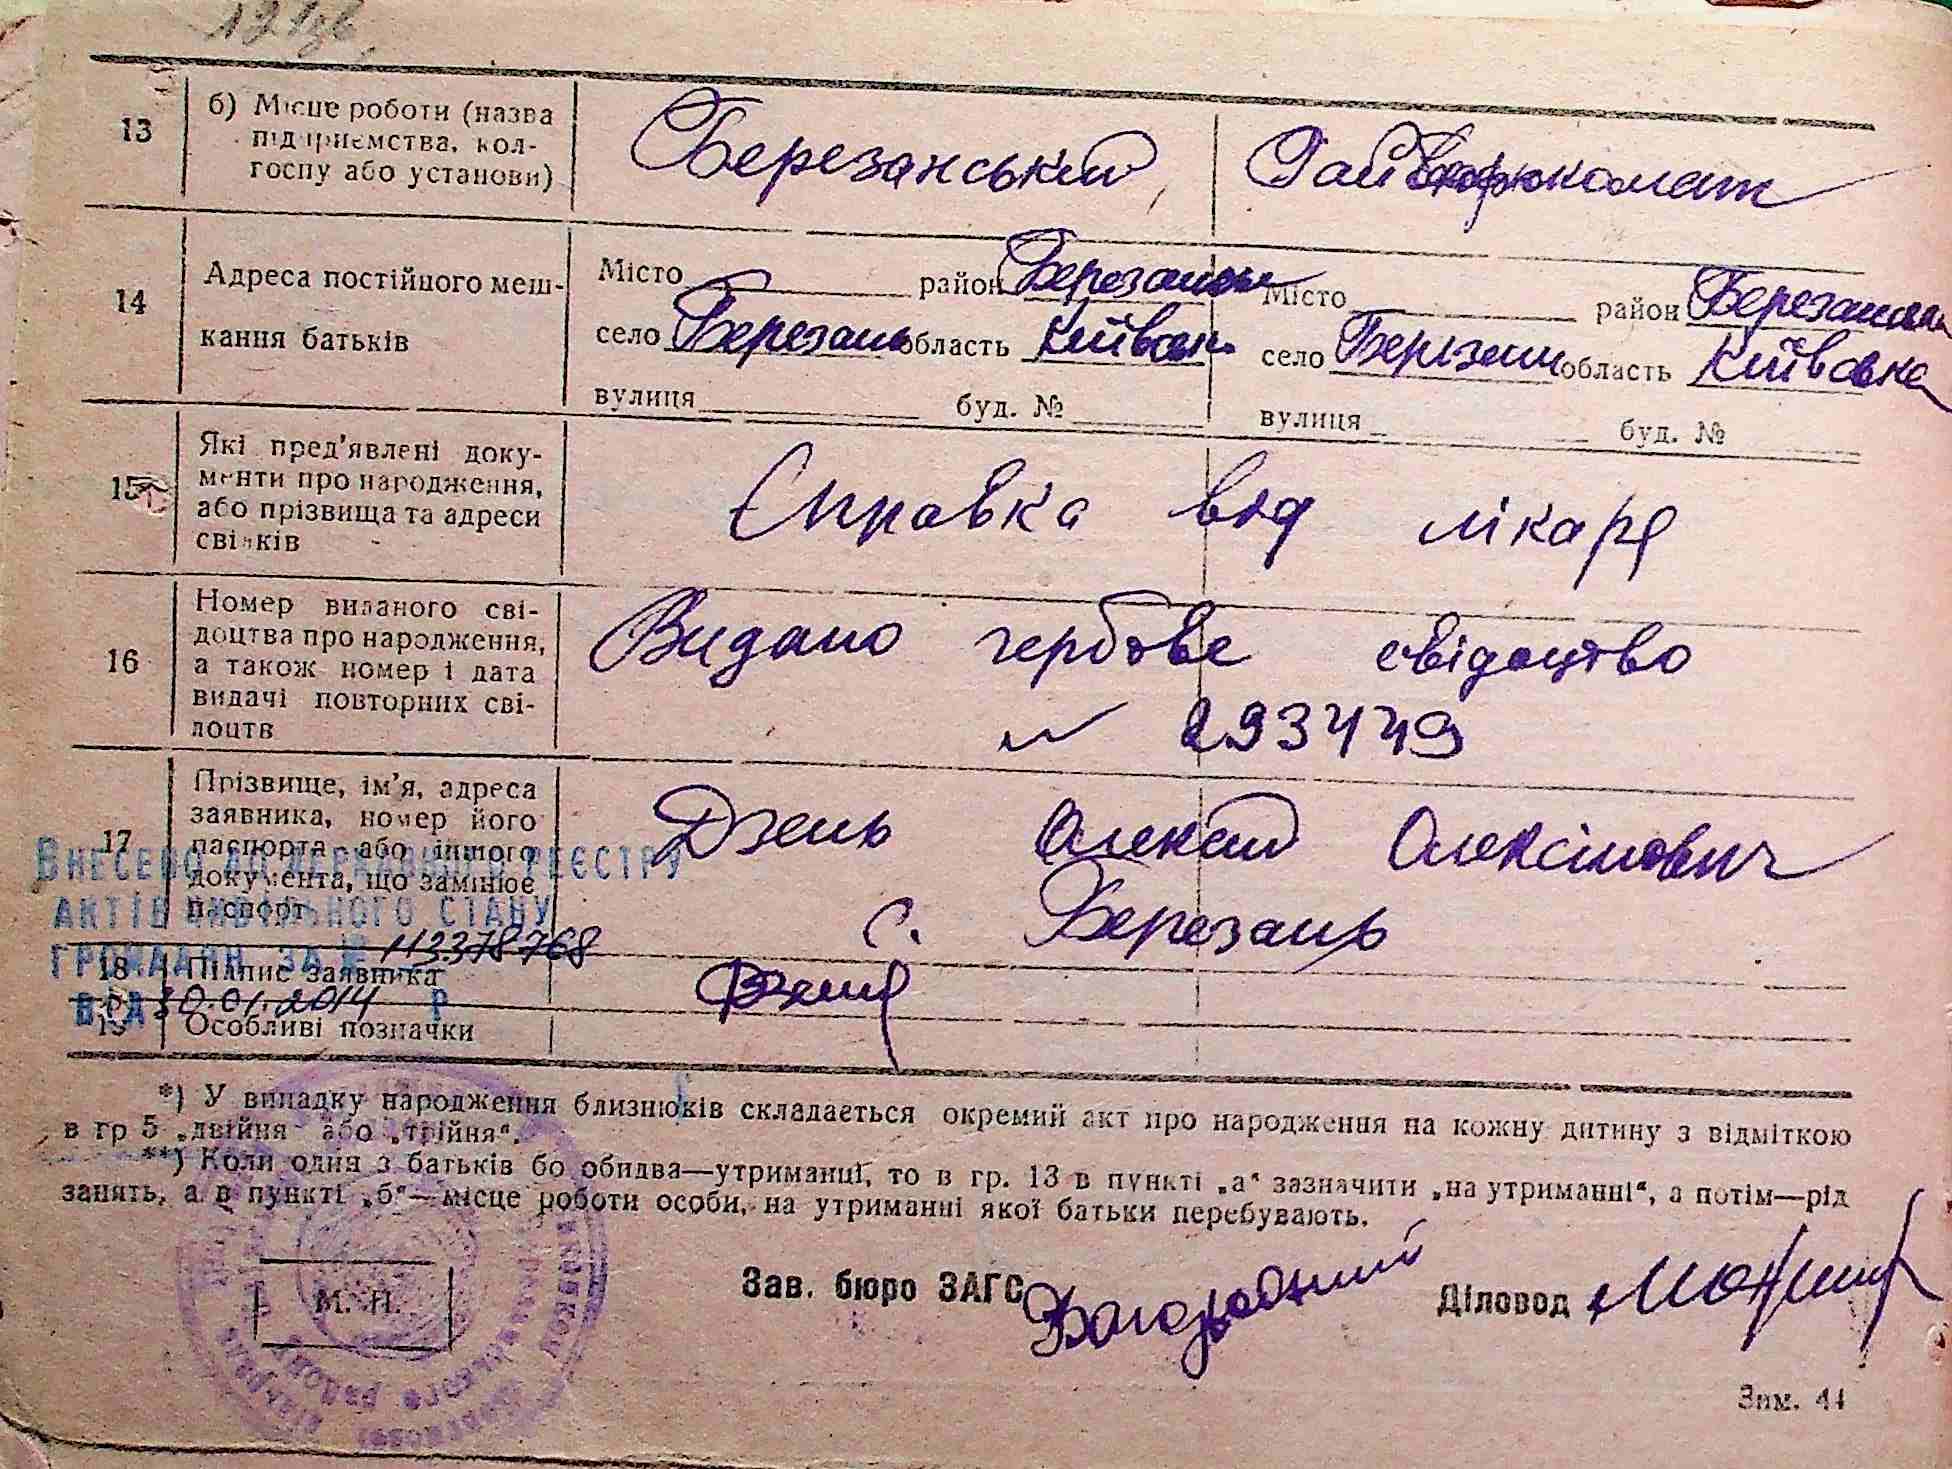 13 б) Місце роботи (назва підприємства, колгоспу або установи) Березанський Райвоєнкомат
14 Адреса постійного мешкання батьків
Місто район Березанськ Місто район Березанськ
село Березань область Київськ село Березань область Київська
вулиця буд. № вулиця буд. №
15 Які пред'явлені документи про народження, або прізвища та адреси свідків Справка від лікаря
16 Номер виданого свідоцтва про народження, а також номер і дата видачі повторних свідоцтв Видано гербове свідоцтво
№ 293449
17 Прізвище, ім'я, адреса заявника, номер його паспорта або іншого документа, що замінює паспорт Дзень Олексій Олексійович
с. Березань
Внесено до державного реєстру
актів цивільного стану
громадян за № 11337 8768
від 30.01.2014 р
18 Підпис заявника
19 Особливі позначки
*) У випадку народження близнюків складається окремий акт про народження на кожну дитину з відміткою
в гр 5 „двійня" або „трійня".
**) Коли один з батьків бо обидва—утриманці, то в гр. 13 в пункті „а" зазначити „на утриманні", а потім—рід
занять, а в пункті „б"—місце роботи особи, на утриманні якої батьки перебувають.
М. П.
Зав. бюро ЗАГС
Діловод
Зим. 44